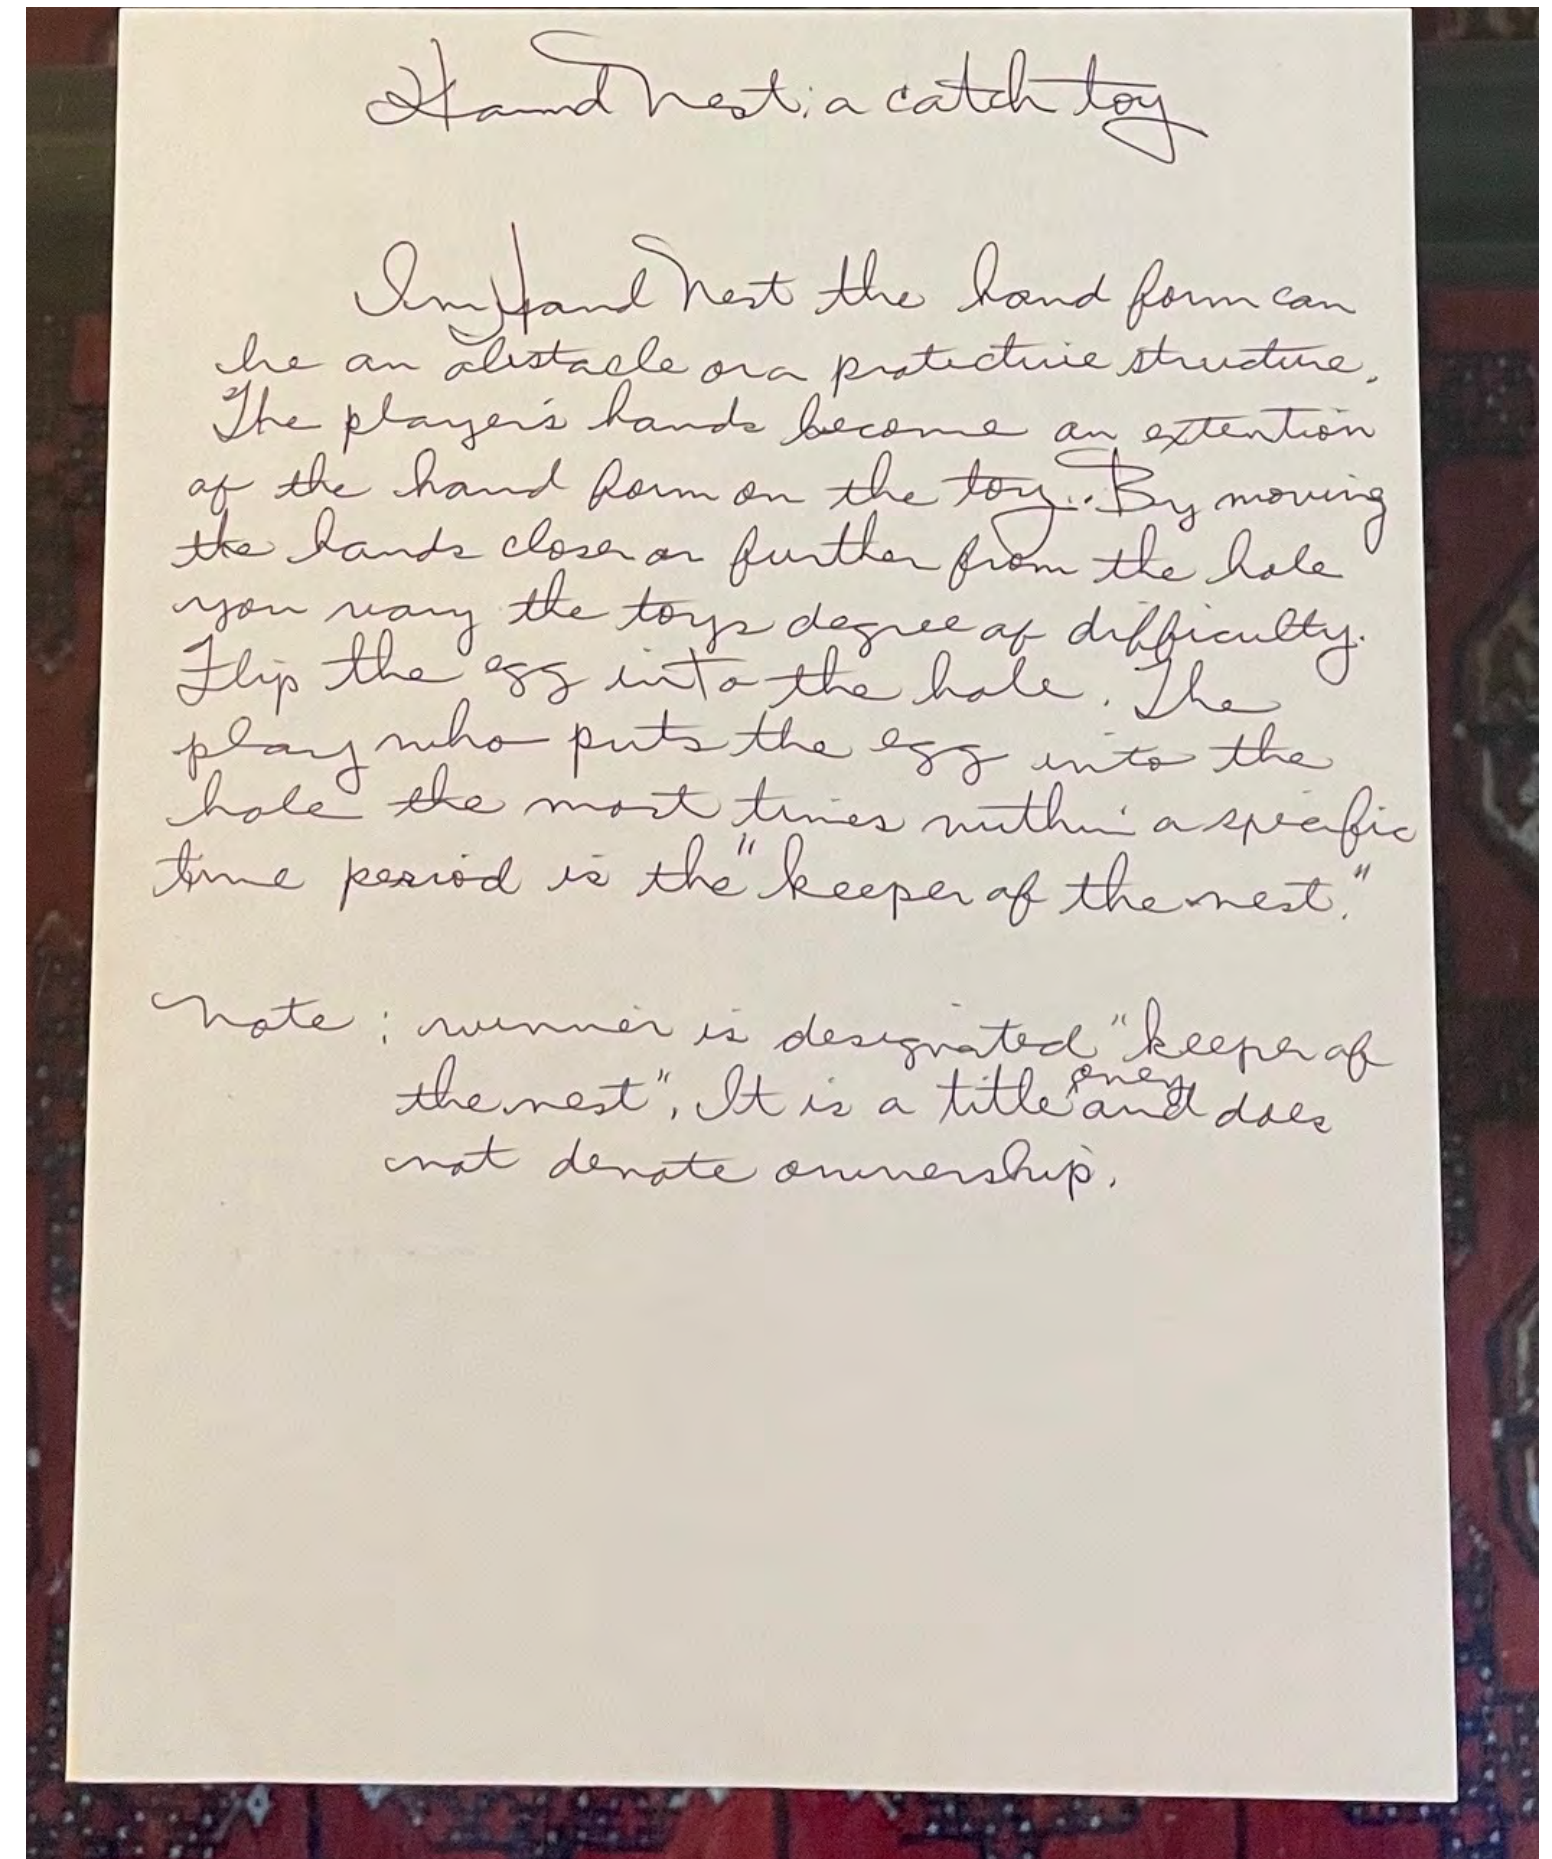 Hand Nest: a catch toy
In Hand Nest the hand form can
be an obstacle or a protective structure.
The player's hands become an extention
of the hand form on the toy. By moving
the hands closer or further from the hole
you vary the toys degree of difficulty.
Flip the egg into the hole. The
play who puts the egg into the
hole the most times within a specific
time period is the "keeper of the nest."
Note: winner is designated "keeper of
the nest". It is a title only and does
not denote ownership.